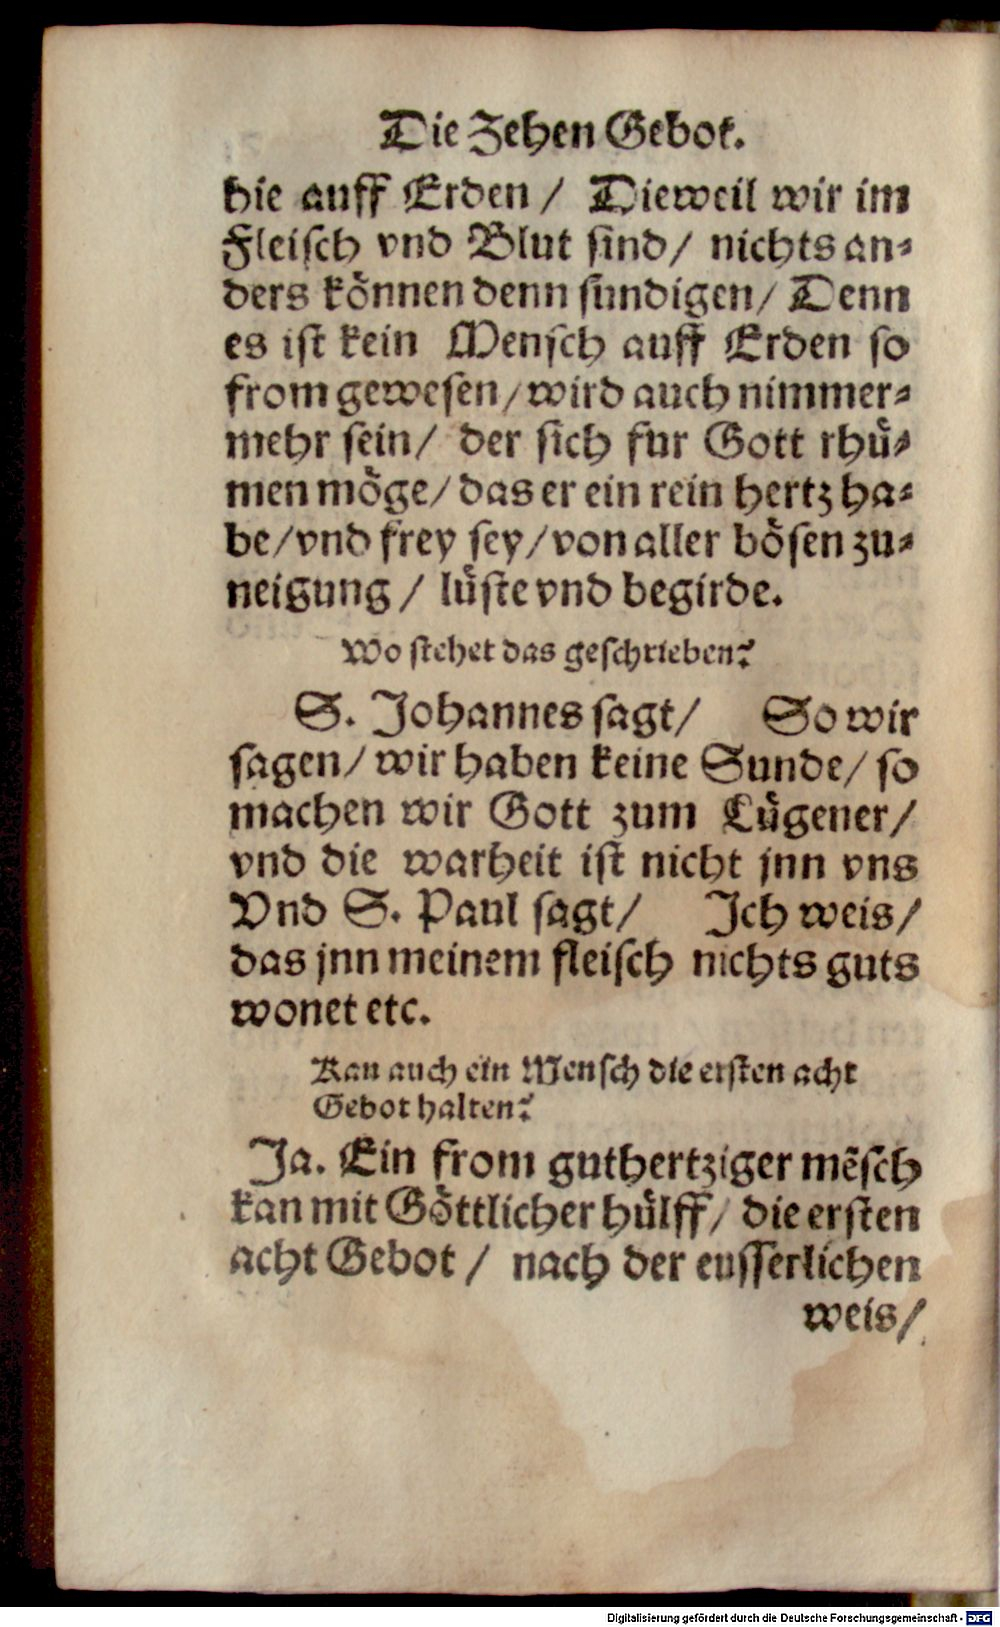 Die Zehen Gebot.
hie auff Erden / Dieweil wir im
Fleisch vnd Blut sind/ nichts an⸗
ders können denn sundigen/ Denn
es ist kein Mensch auff Erden so
from gewesen/ wird auch nimmer⸗
mehr sein/ der sich fur Gott rhü⸗
men möge/ das er ein rein hertz ha⸗
be/ vnd frey sey/ von aller bösen zu⸗
neigung / lüste vnd begirde.
Wo stehet das geschrieben?
S. Johannes sagt/ So wir
sagen/ wir haben keine Sunde/ so
machen wir Gott zum Lügener/
vnd die warheit ist nicht jnn vns
Vnd S. Paul sagt/ Ich weis/
das jnn meinem fleisch nichts guts
wonet etc.
Kan auch ein Mensch die ersten acht
Gebot halten?
Ja. Ein from guthertziger mẽsch
kan mit Göttlicher hülff/ die ersten
acht Gebot / nach der eusserlichen
weis/
Digitalisierung gefördert durch die Deutsche Forschungsgemeinschaft - DFG